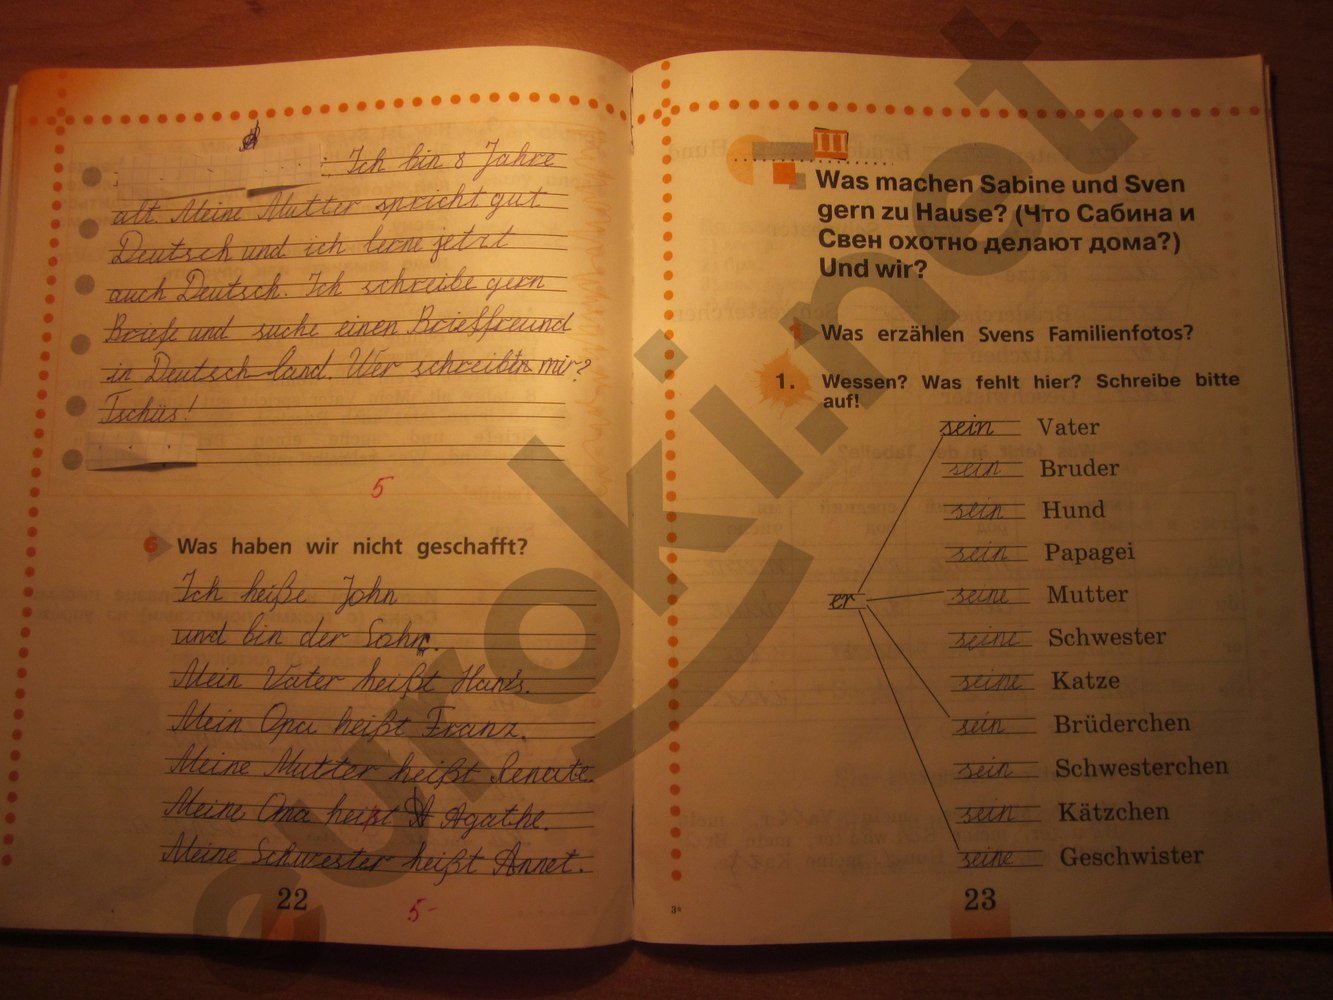 : Ich bin 8 Jahre
alt. Meine Mutter spricht gut
Deutsch und ich lirne jetzt
auch Deutsch. Ich schreibe gern
Briefe und suche einen Brieffreund
in Deutsch land. Wer schreibtn mir?
Tschüs!
5
6 Was haben wir nicht geschafft?
Ich heiße John
und bin der Sohn.
Mein Vater heißt Hans.
Mein Opa heißt Franz.
Meine Mutter heißt Renate.
Meine Oma heißt Agathe.
Meine Schwester heißt Annet.
22
5-
III
Was machen Sabine und Sven
gern zu Hause? (Что Сабина и
Свен охотно делают дома?)
Und wir?
1 Was erzählen Svens Familienfotos?
1. Wessen? Was fehlt hier? Schreibe bitte
auf!
sein Vater
sein Bruder
sein Hund
sein Papagei
er seine Mutter
seine Schwester
seine Katze
sein Brüderchen
sein Schwesterchen
sein Kätzchen
seine Geschwister
23
3*
euroki.net